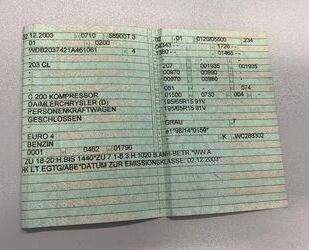 02.12.2003 0710 56900T 3
01 0200
WDB2037421A461061 4
203 CL
-
-
C 200 KOMPRESSOR
DAIMLERCHRYSLER (D)
PERSONENKRAFTWAGEN
GESCHLOSSEN
EURO 4
BENZIN
0001 0462 01796
01 0120/05500 234
1726
1380 1465
207 001935 001935
00970 00990
00970 00990
081 074
01500 0730 004
195/65R15 91V
195/65R15 91V
GRAU 7
e1*98/14*0159*
K WC288302
ZU 18-20:H.BIS 1440*ZU 7.1-8.3:H.1020 B.ANH-BETR.*WW A
HK LT EGTG/ABE*DATUM ZUR EMISSIONSKLASSE: 02.12.2003*